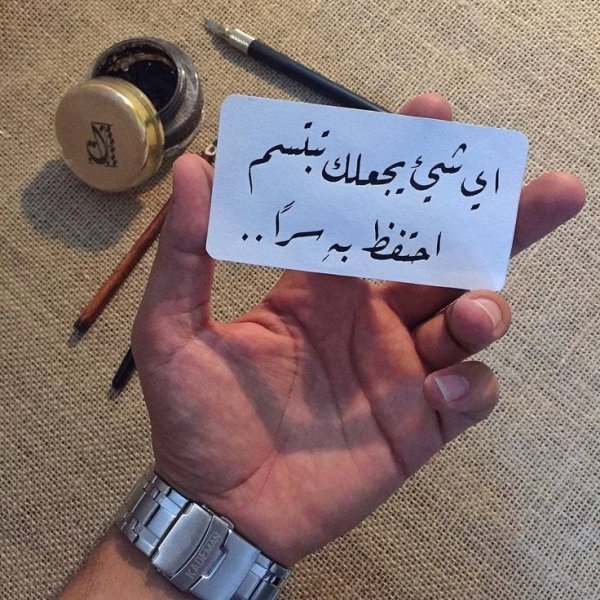 اي شيءٍ يجعلك تبتسم
احتفظ بهِ سراً ..